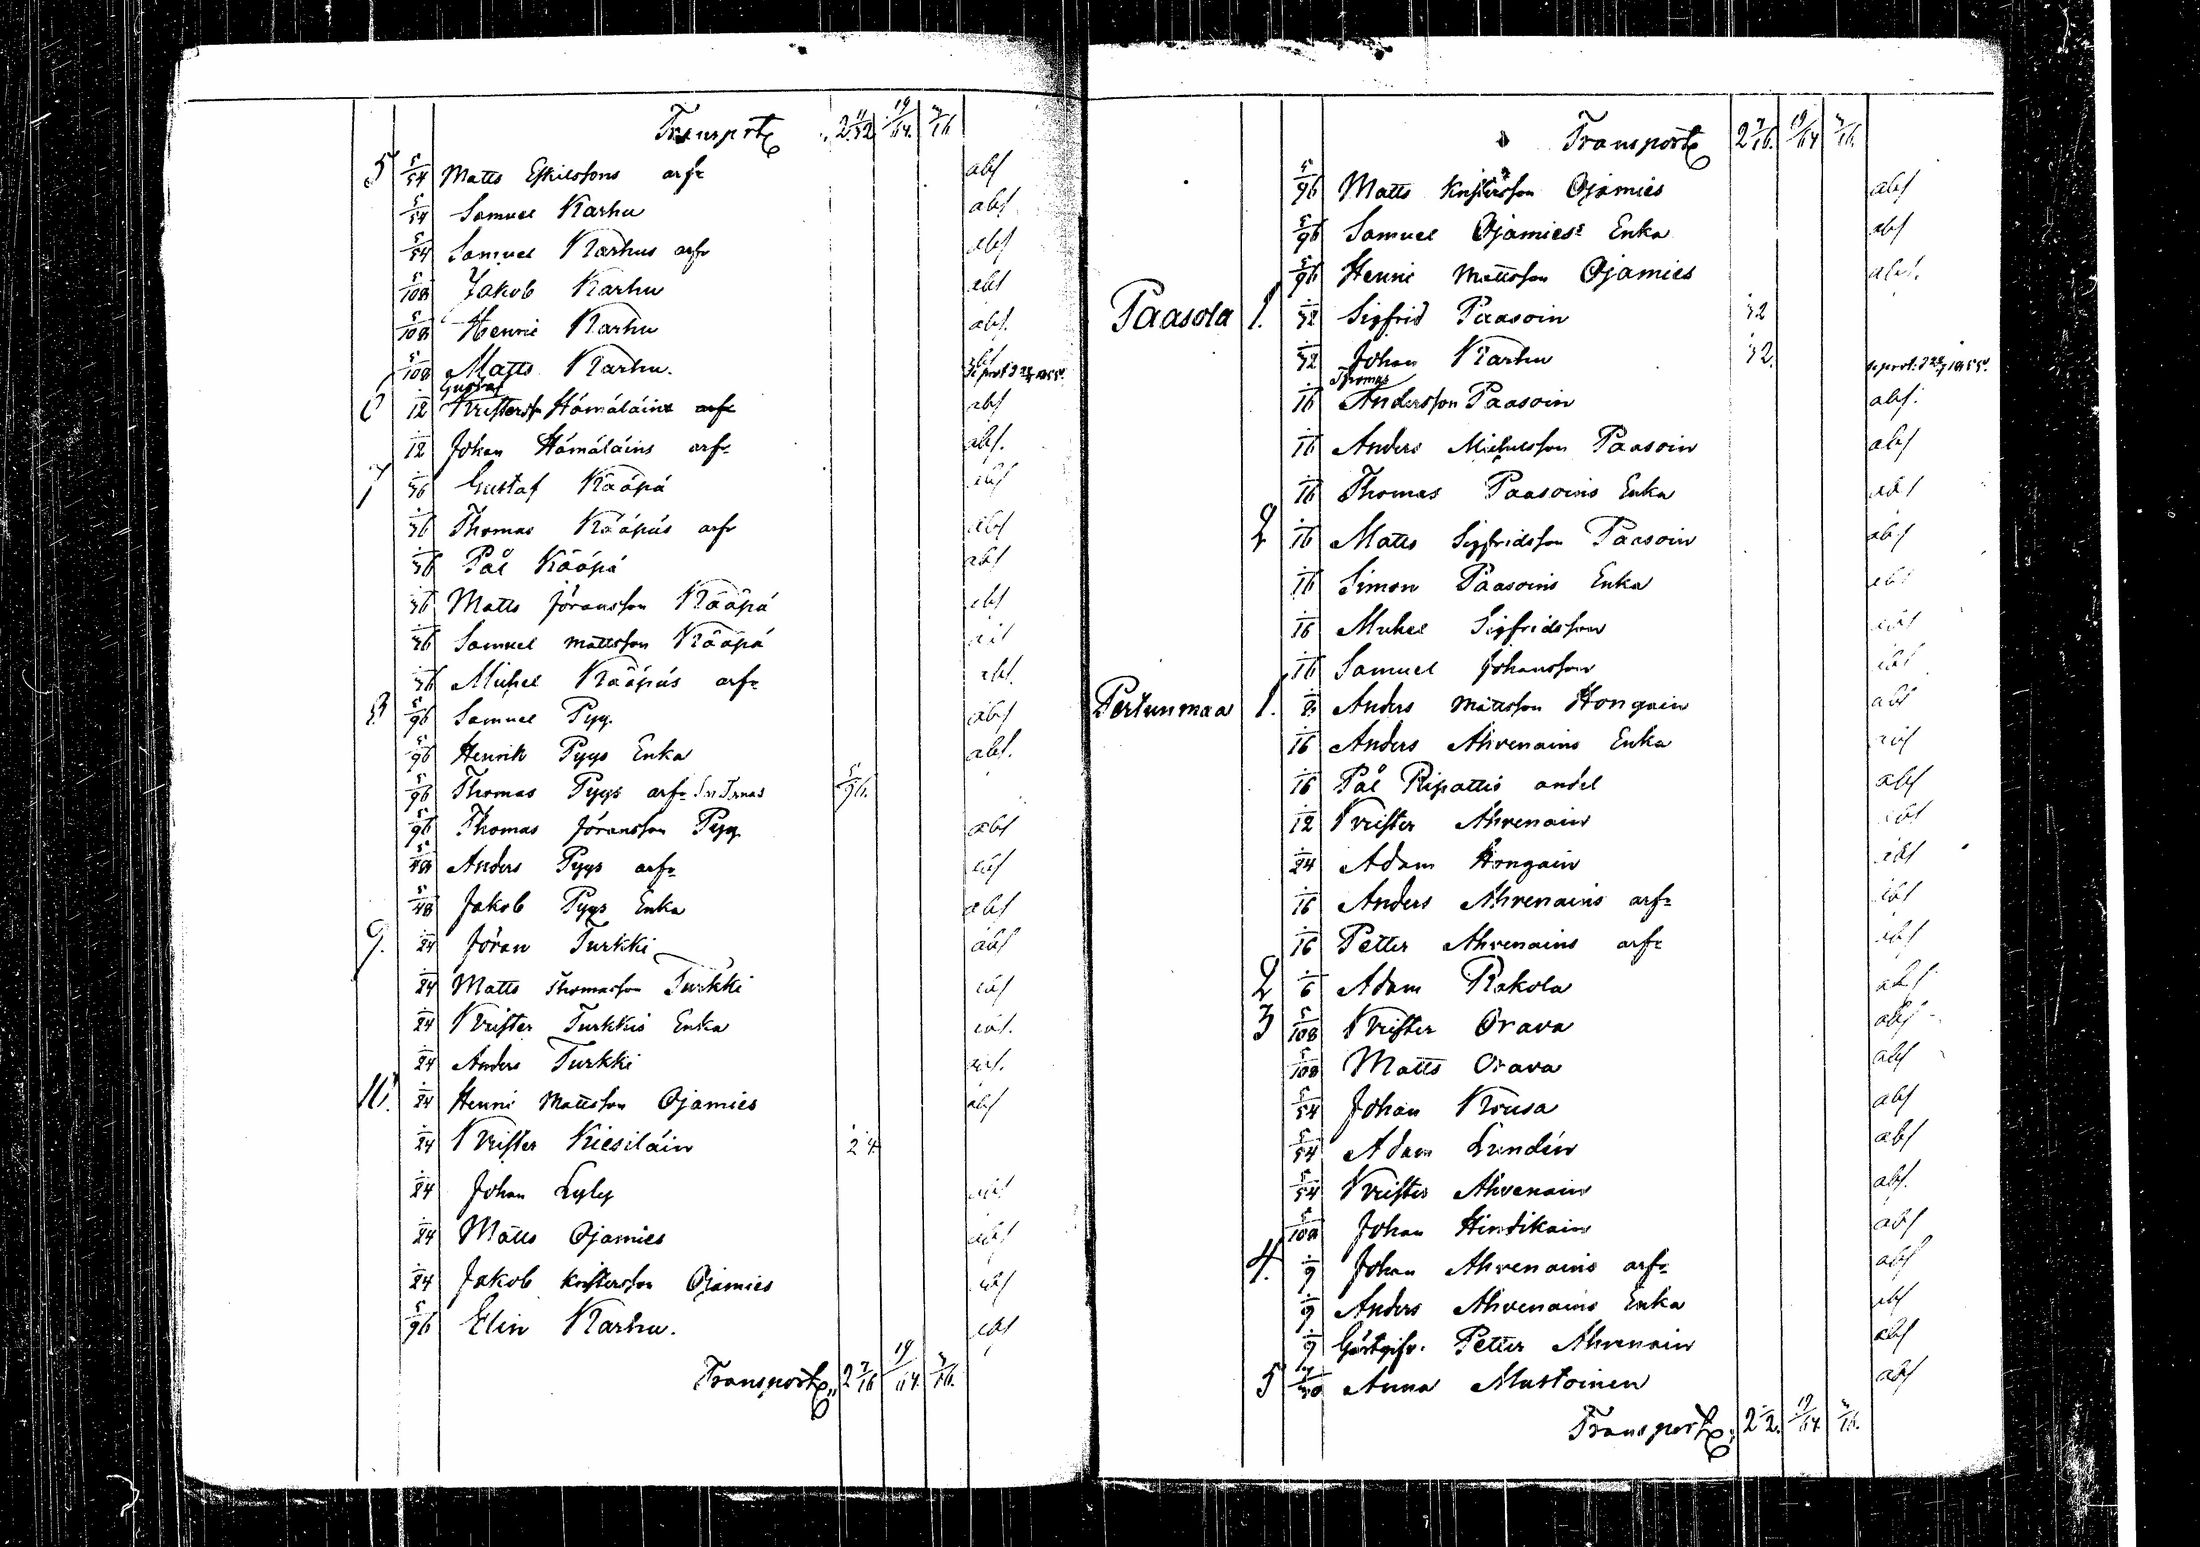 Transport 2 11/32 19/64 3/16
5 5/54 Matts Eskilssons arfr abs
5/54 Samuel Karhu abs
5/54 Samuel Karhus arfr abs
5/108 Jakob Karhu abs
5/108 Henric Karhu abs.
5/108 Matts Karhu. abs
Gustaf
6 1/12 Kristerss. Hämäläins arfr abs
1/12 Johan Hämäläins arfr abs.
7 1/36 Gustaf Kääpä abs
1/36 Thomas Kääpäs arfr abs
1/36 Pål Kääpä abs
1/36 Matts Jöransson Kääpä abs
1/36 Samuel Mattsson Kääpä abs
1/36 Michel Kääpäs arfr abs.
8 5/96 Samuel Pyy. abs
5/96 Henrik Pyys Enka abs.
5/96 Thomas Pyys arfr 5/96.
5/96 Thomas Jöransson Pyy abs
5/48 Anders Pyys arfr abs
5/48 Jakob Pyys Enka abs
9. 1/24 Jöran Turkki abs
1/24 Matts Thomasson Turkki abs
1/24 Krister Turkkis Enka abs.
1/24 Anders Turkki abs.
10. 1/24 Henric Mattsson Ojamies abs
1/24 Krister Kiesiläin 1/24
1/24 Johan Lyly abs
1/24 Matts Ojamies abs
1/24 Jakob Kristersson Ojamies abs
5/96 Elin Karhu. abs
Transport 2 7/16 19/64. 3/16.
Transport 2 7/16. 19/64 3/16.
5/96 Matts Kristersson Ojamies abs
5/96 Samuel Ojamies's Enka abs
5/96 Henric Mattsson Ojamies abs.
Paasola 1. 1/32 Sigfrid Paasoin 1/32
1/32 Johan Karhu 1/32.
Thomas
1/16 Andersson Paasoin abs.
1/16 Anders Michelsson Paasoin abs
1/16 Thomas Paasoins Enka abs
2 1/16 Matts Sigfridsson Paasoin abs
1/16 Simon Paasoins Enka abs
1/16 Michel Sigfridsson abs
1/16 Samuel Johansson abs
Pertunmaa 1. 1/8 Anders Mattsson Hongain abs
1/16 Anders Ahvenains Enka abs
1/16 Pål Ripattis andel abs
1/12 Krister Ahvenain abs
1/24 Adam Hongain abs
1/16 Anders Ahvenains arfr abs
1/16 Petter Ahvenains arfr abs
2 1/6 Adam Rakola abs
3 5/108 Krister Orava abs
5/108 Matts Orava abs
5/54 Johan Krusa abs
5/54 Adam Lundén abs
5/54 Krister Ahvenain abs.
5/108 Johan Hindikain abs
4. 1/9 Johan Ahvenains arfr abs
1/9 Anders Ahvenains Enka abs
1/9 Gästgifv. Petter Ahvenain abs
5 Anna Mustoinen abs
Transport 2 1/2. 19/64. 3/16.